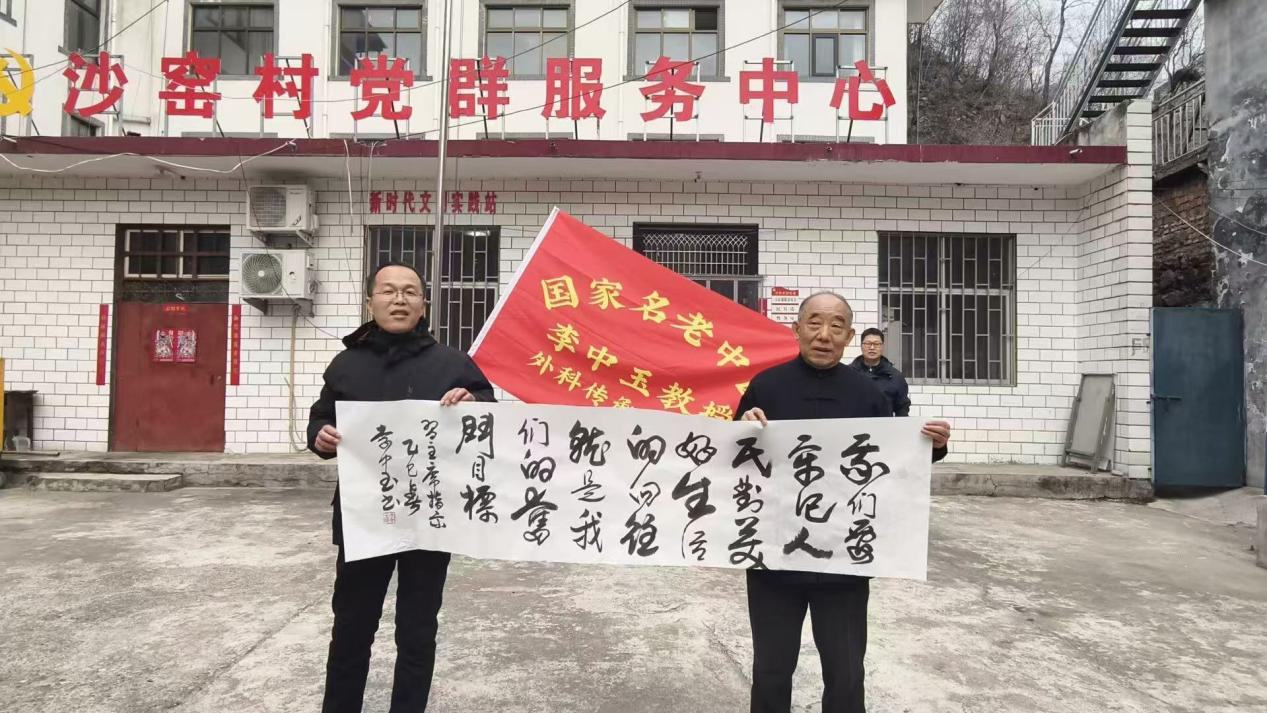 沙窑村党群服务中心
新时代文明实践站
国家名老中
李中玉教授
外科传承
我们要
牢记人
民對美
好生活
的向往
就是我
们的奮
鬪目標
習主席指示
乙巳春
李中玉书